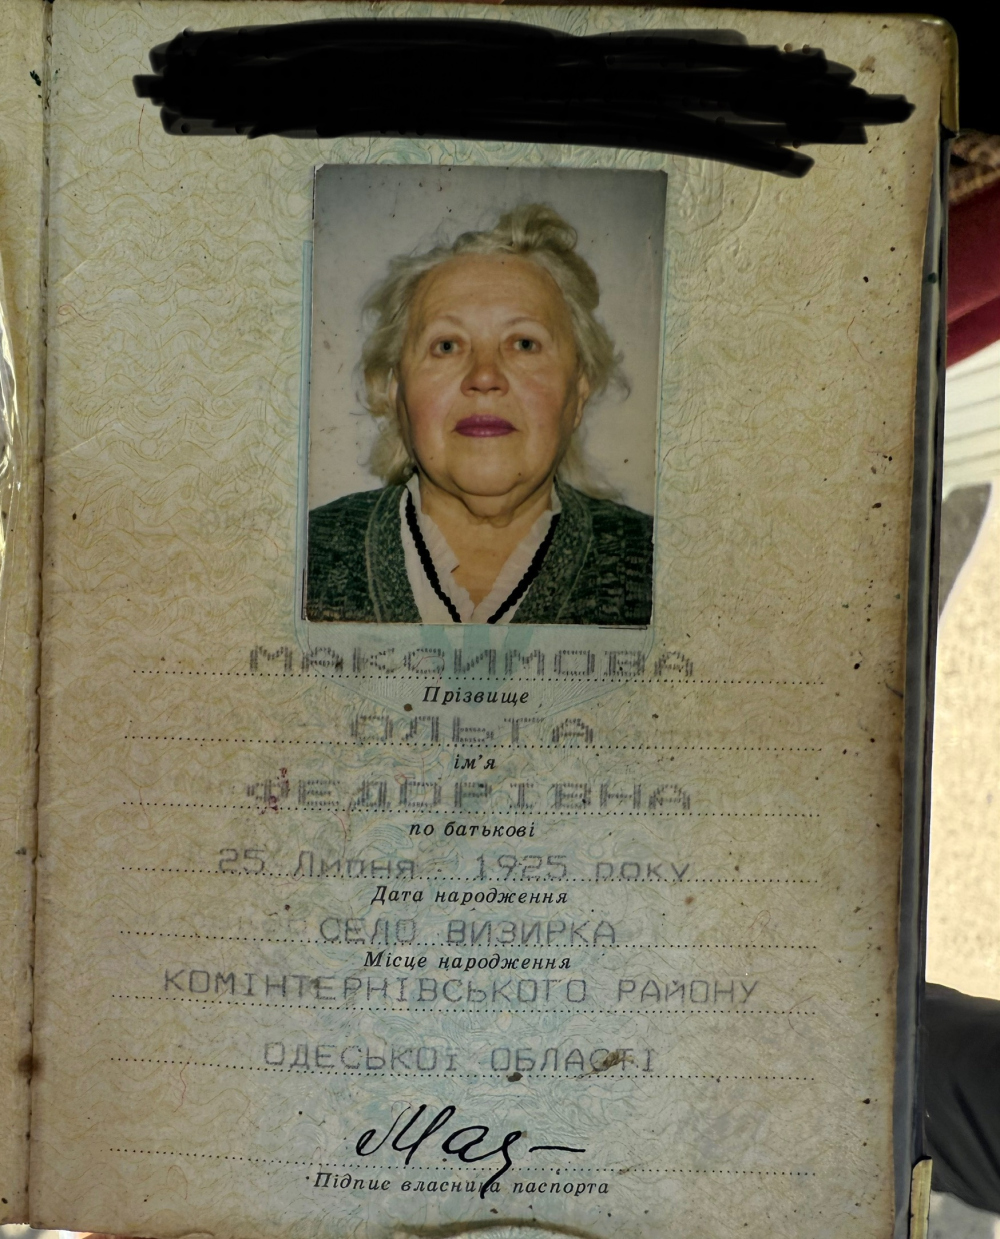 МАКСИМОВА
Прізвище
ОЛЬГА
ім’я
ФЕДОРІВНА
по батькові
25 Липня 1925 року
Дата народження
СЕЛО ВИЗИРКА
Місце народження
КОМІНТЕРНІВСЬКОГО РАЙОНУ
ОДЕСЬКОЇ ОБЛАСТІ
Підпис власника паспорта